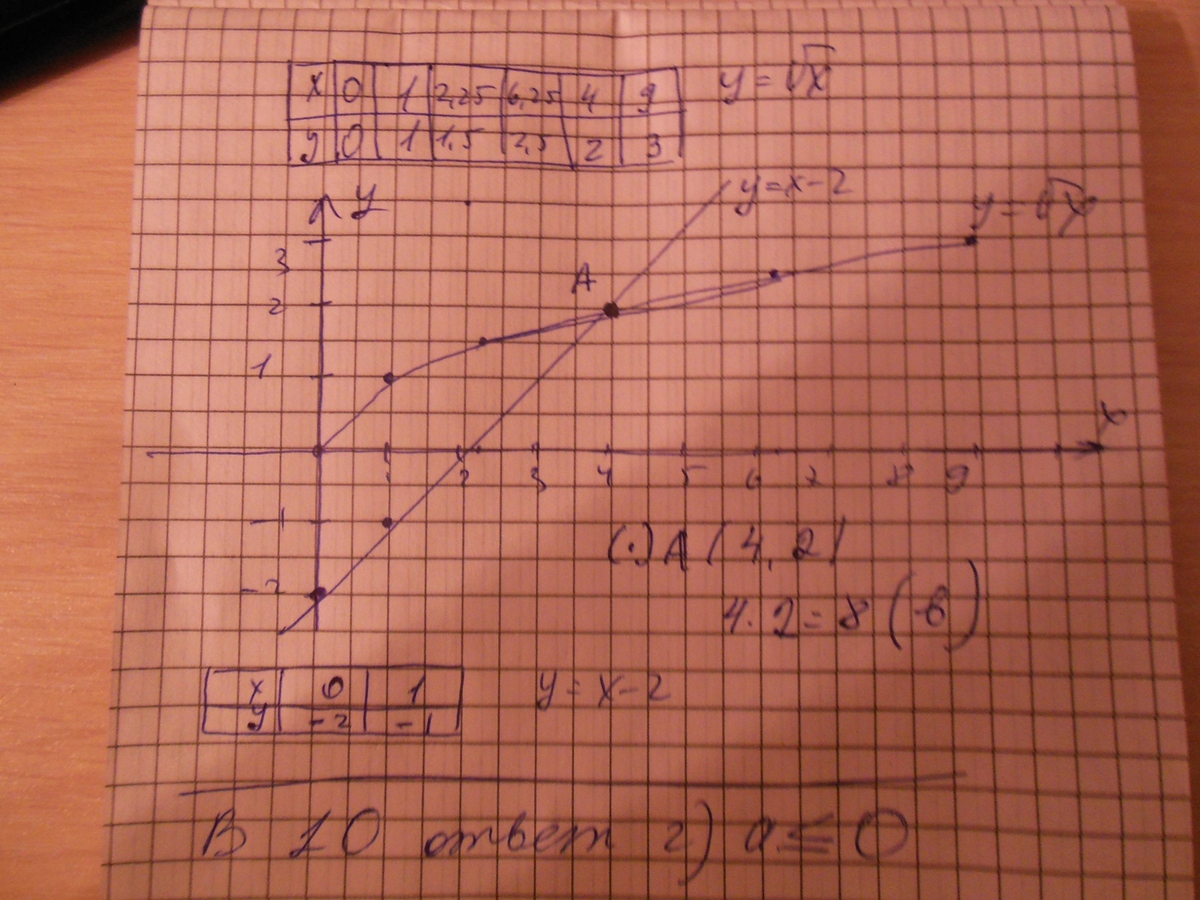 x 0 1 2,25 6,25 4 9 y = √x
y 0 1 1,5 2,5 2 3
y y=x-2 y=√x
3
A
2
1
x
1 2 3 4 5 6 7 8 9
-1
(.) A (4, 2)
-2
4·2=8 (-6)
x 0 1 y = x-2
y -2 -1
В 10 ответ г) a≤0